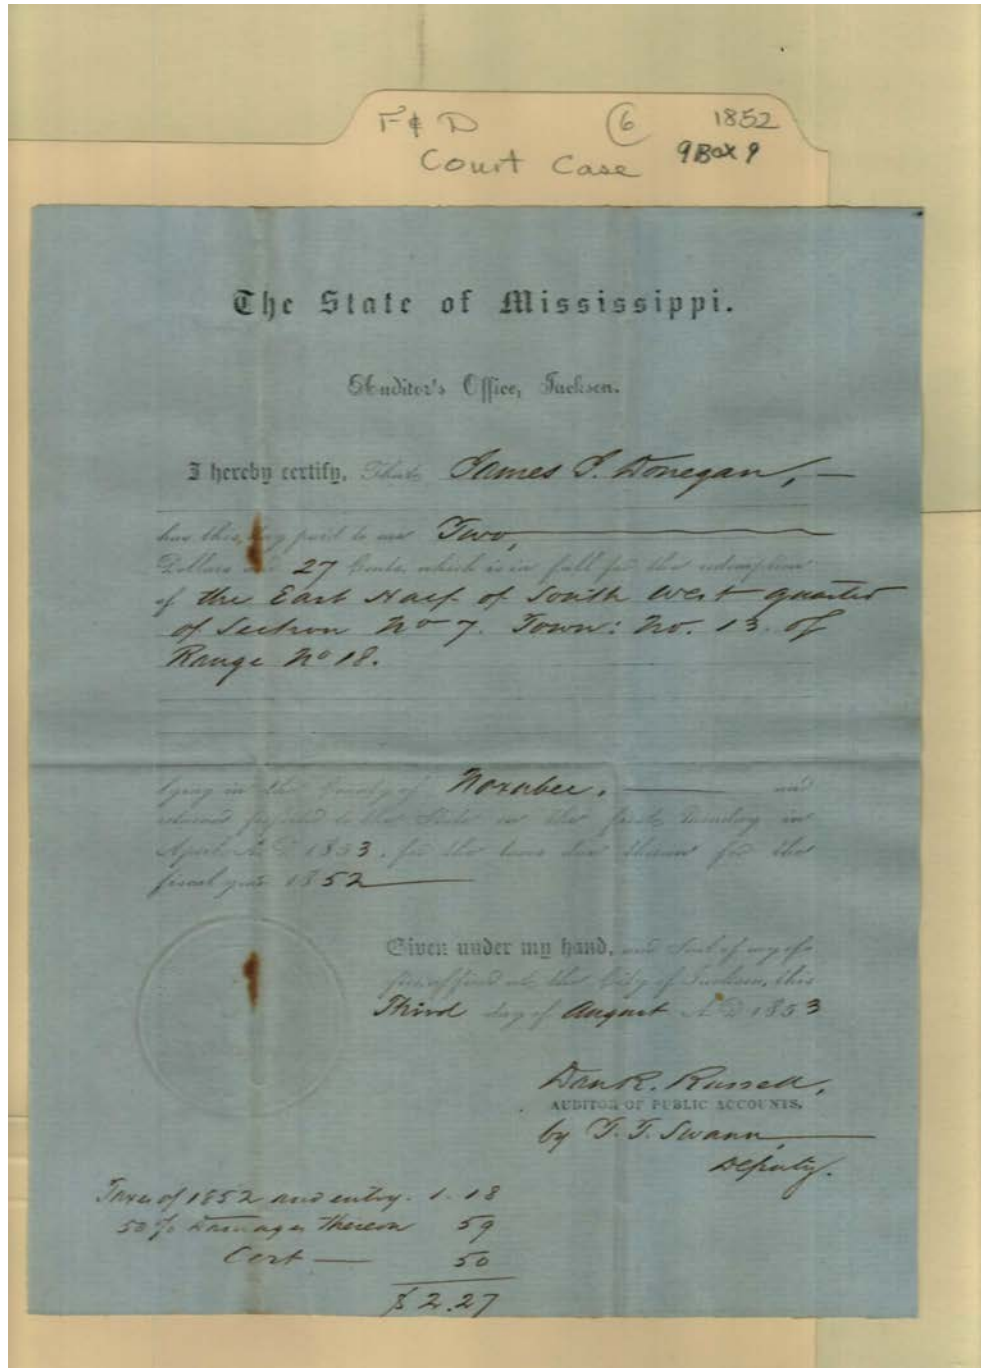 F & D ⑥ 1852
Court Case 9 Box 9
The State of Mississippi.
Auditor's Office, Jackson.
I hereby certify, That James J. Donegan,
has this day paid to me Two,
Dollars and 27 Cents, which is in full for the redemption
of the East Half of South West quarter
of Section No 7. Town: No. 13. of
Range No 18.
lying in the County of Noxubee. and
returned forfeited to the State on the first Monday in
April A.D. 1853, for the taxes due thereon for the
fiscal year 1852
Given under my hand, and Seal of my of-
fice affixed at the City of Jackson, this
Third day of August A.D. 1853
Dan R. Russell,
AUDITOR OF PUBLIC ACCOUNTS.
by T. T. Swann,
Deputy.
Taxes of 1852 and entry. 1.18
50 % Damages thereon 59
Cert 50
$2.27